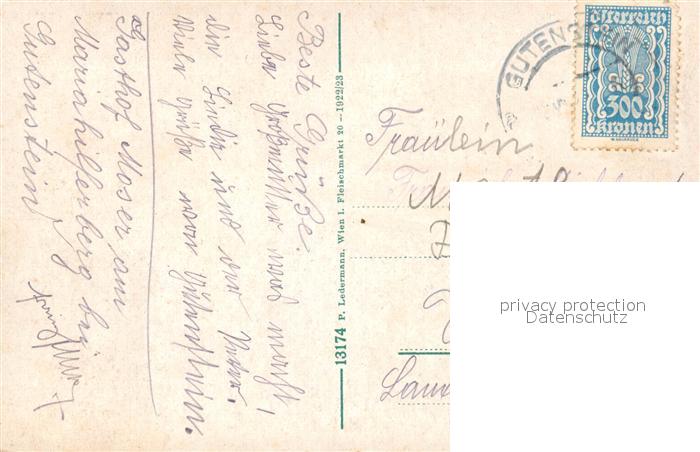 Beste Grüße.
Liebe Großmutter was macht,
die Lindi und der Vater.
Viele Grüße von Gutenstein.
Gasthof Moser am
Mariahilferberg bei
Gutenstein
13174 P. Ledermann, Wien I. Fleischmarkt 20 — 1922/23
GUTENS
Österreich
300
Kronen
Fräulein
privacy protection
Datenschutz